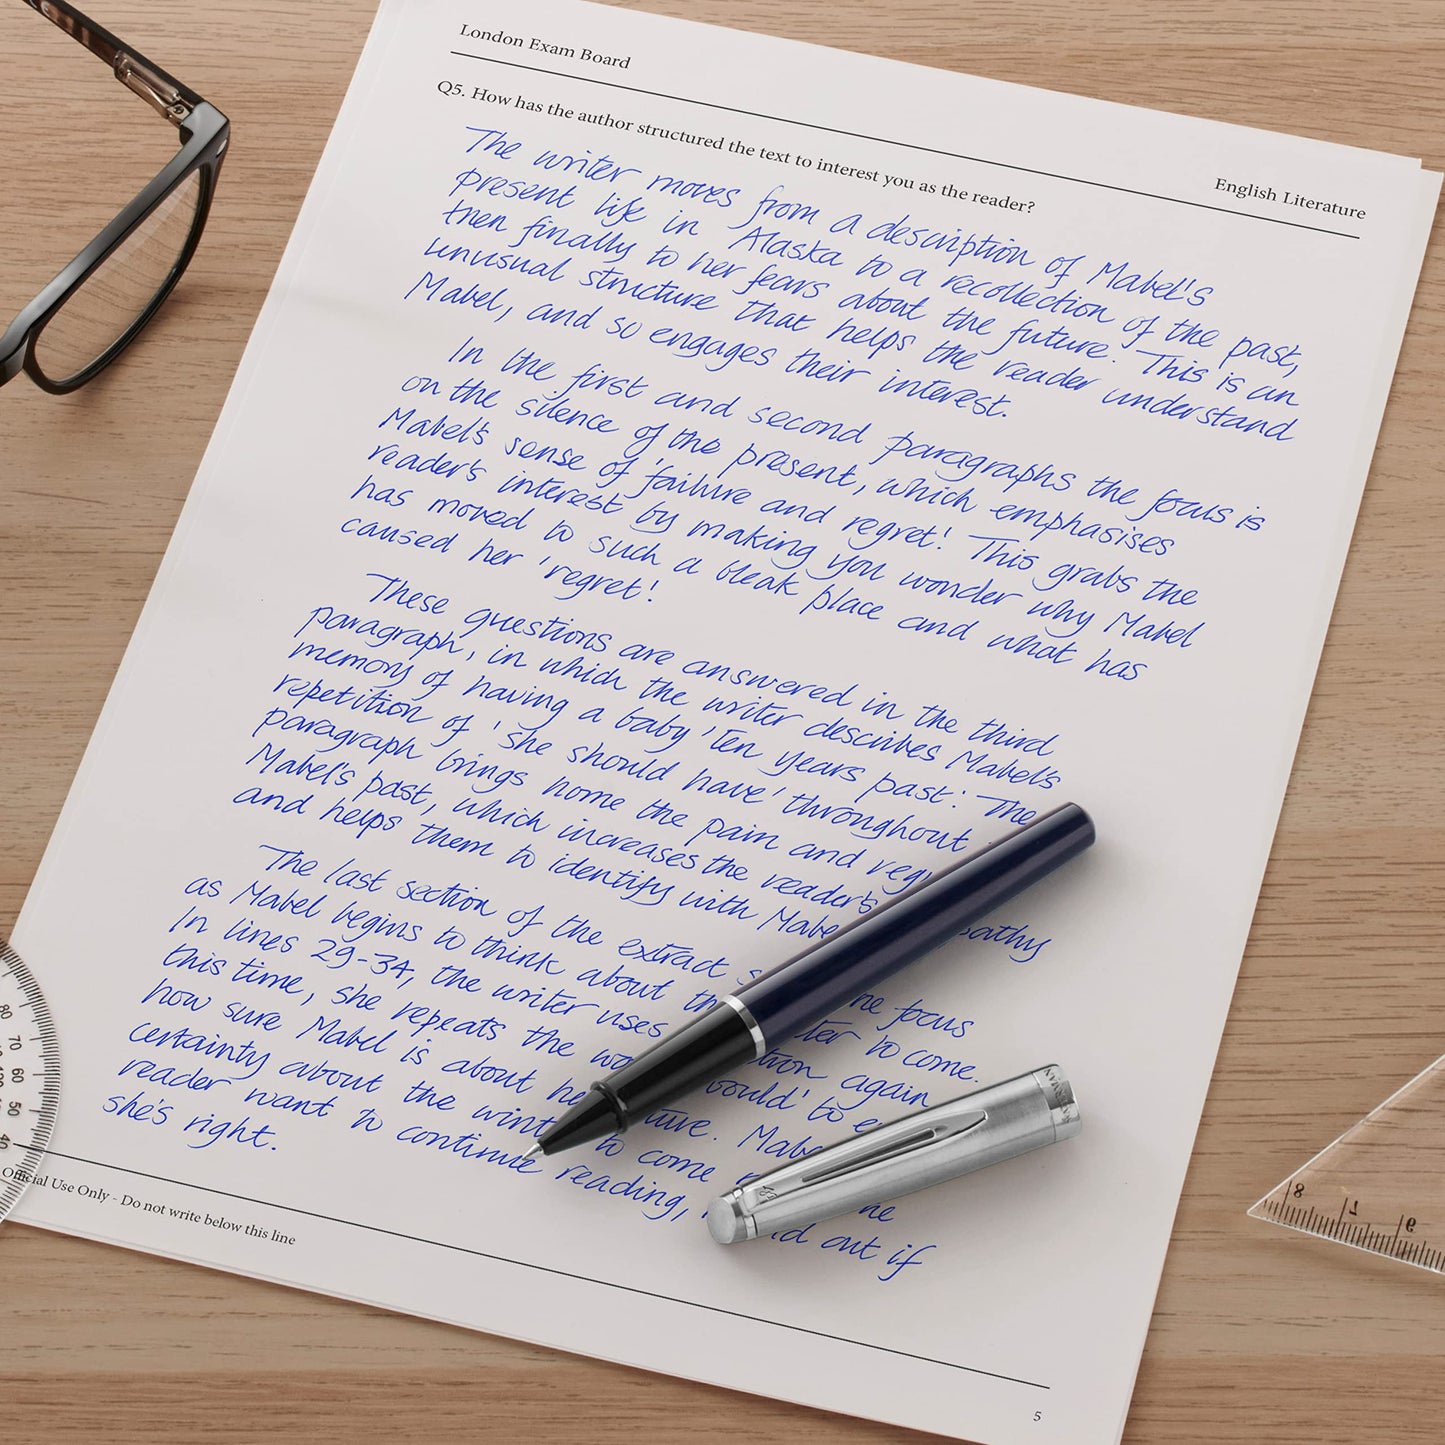 London Exam Board
English Literature
Q5. How has the author structured the text to interest you as the reader?
The writer moves from a description of Mabel's
present life in Alaska to a recollection of the past,
then finally to her fears about the future. This is an
unusual structure that helps the reader understand
Mabel, and so engages their interest.
In the first and second paragraphs the focus is
on the silence of the present, which emphasises
Mabel's sense of failure and regret! This grabs the
reader's interest by making you wonder why Mabel
has moved to such a bleak place and what has
caused her 'regret!
These questions are answered in the third
paragraph, in which the writer describes Mabel's
memory of having a baby 'ten years past'. The
repetition of 'she should have' throughout
paragraph brings home the pain and
Mabel's past, which increases the reader's
and helps them to identify with
The last section of the extract
as Mabel begins to think about focus
In lines 29-34, the writer uses to come.
this time, she repeats the again
how sure Mabel is about to
certainty about the
reader want to continue reading, out if
she's right.
Official Use Only - Do not write below this line
5
80
70
60
50
40
8
7
6